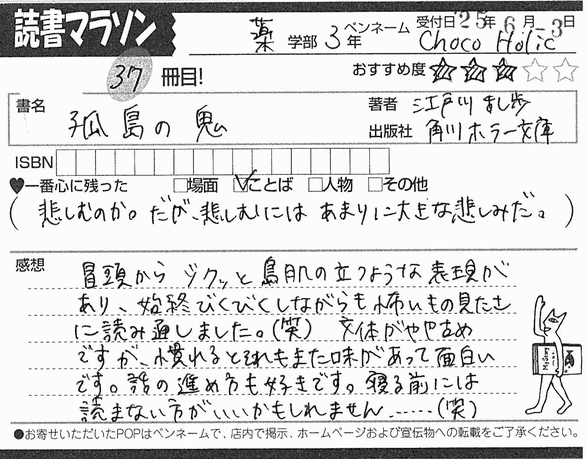 読書マラソン
薬学部 3年 ペンネーム 受付日25年6月-3日
Choco Holic
37冊目! おすすめ度★★★☆☆
書名 孤島の鬼 著者 江戸川まし歩
出版社 角川ホラー文庫
ISBN
♥一番心に残った □場面 ☑ことば □人物 □その他
(悲しむのか。だが、悲しむにはあまりに大きな悲しみだ。)
感想 冒頭からゾクッと鳥肌の立つような表現が
あり、始終びくびくしながらも怖いもの見たさ
に読み通しました。(笑) 文体がやや古め
ですが、慣れるとそれもまた味があって面白い
です。話の進め方も好きです。寝る前には
読まない方がいいかもしれません……(笑)
●お寄せいただいたPOPはペンネームで、店内で掲示、ホームページおよび宣伝物への転載をご了承ください。